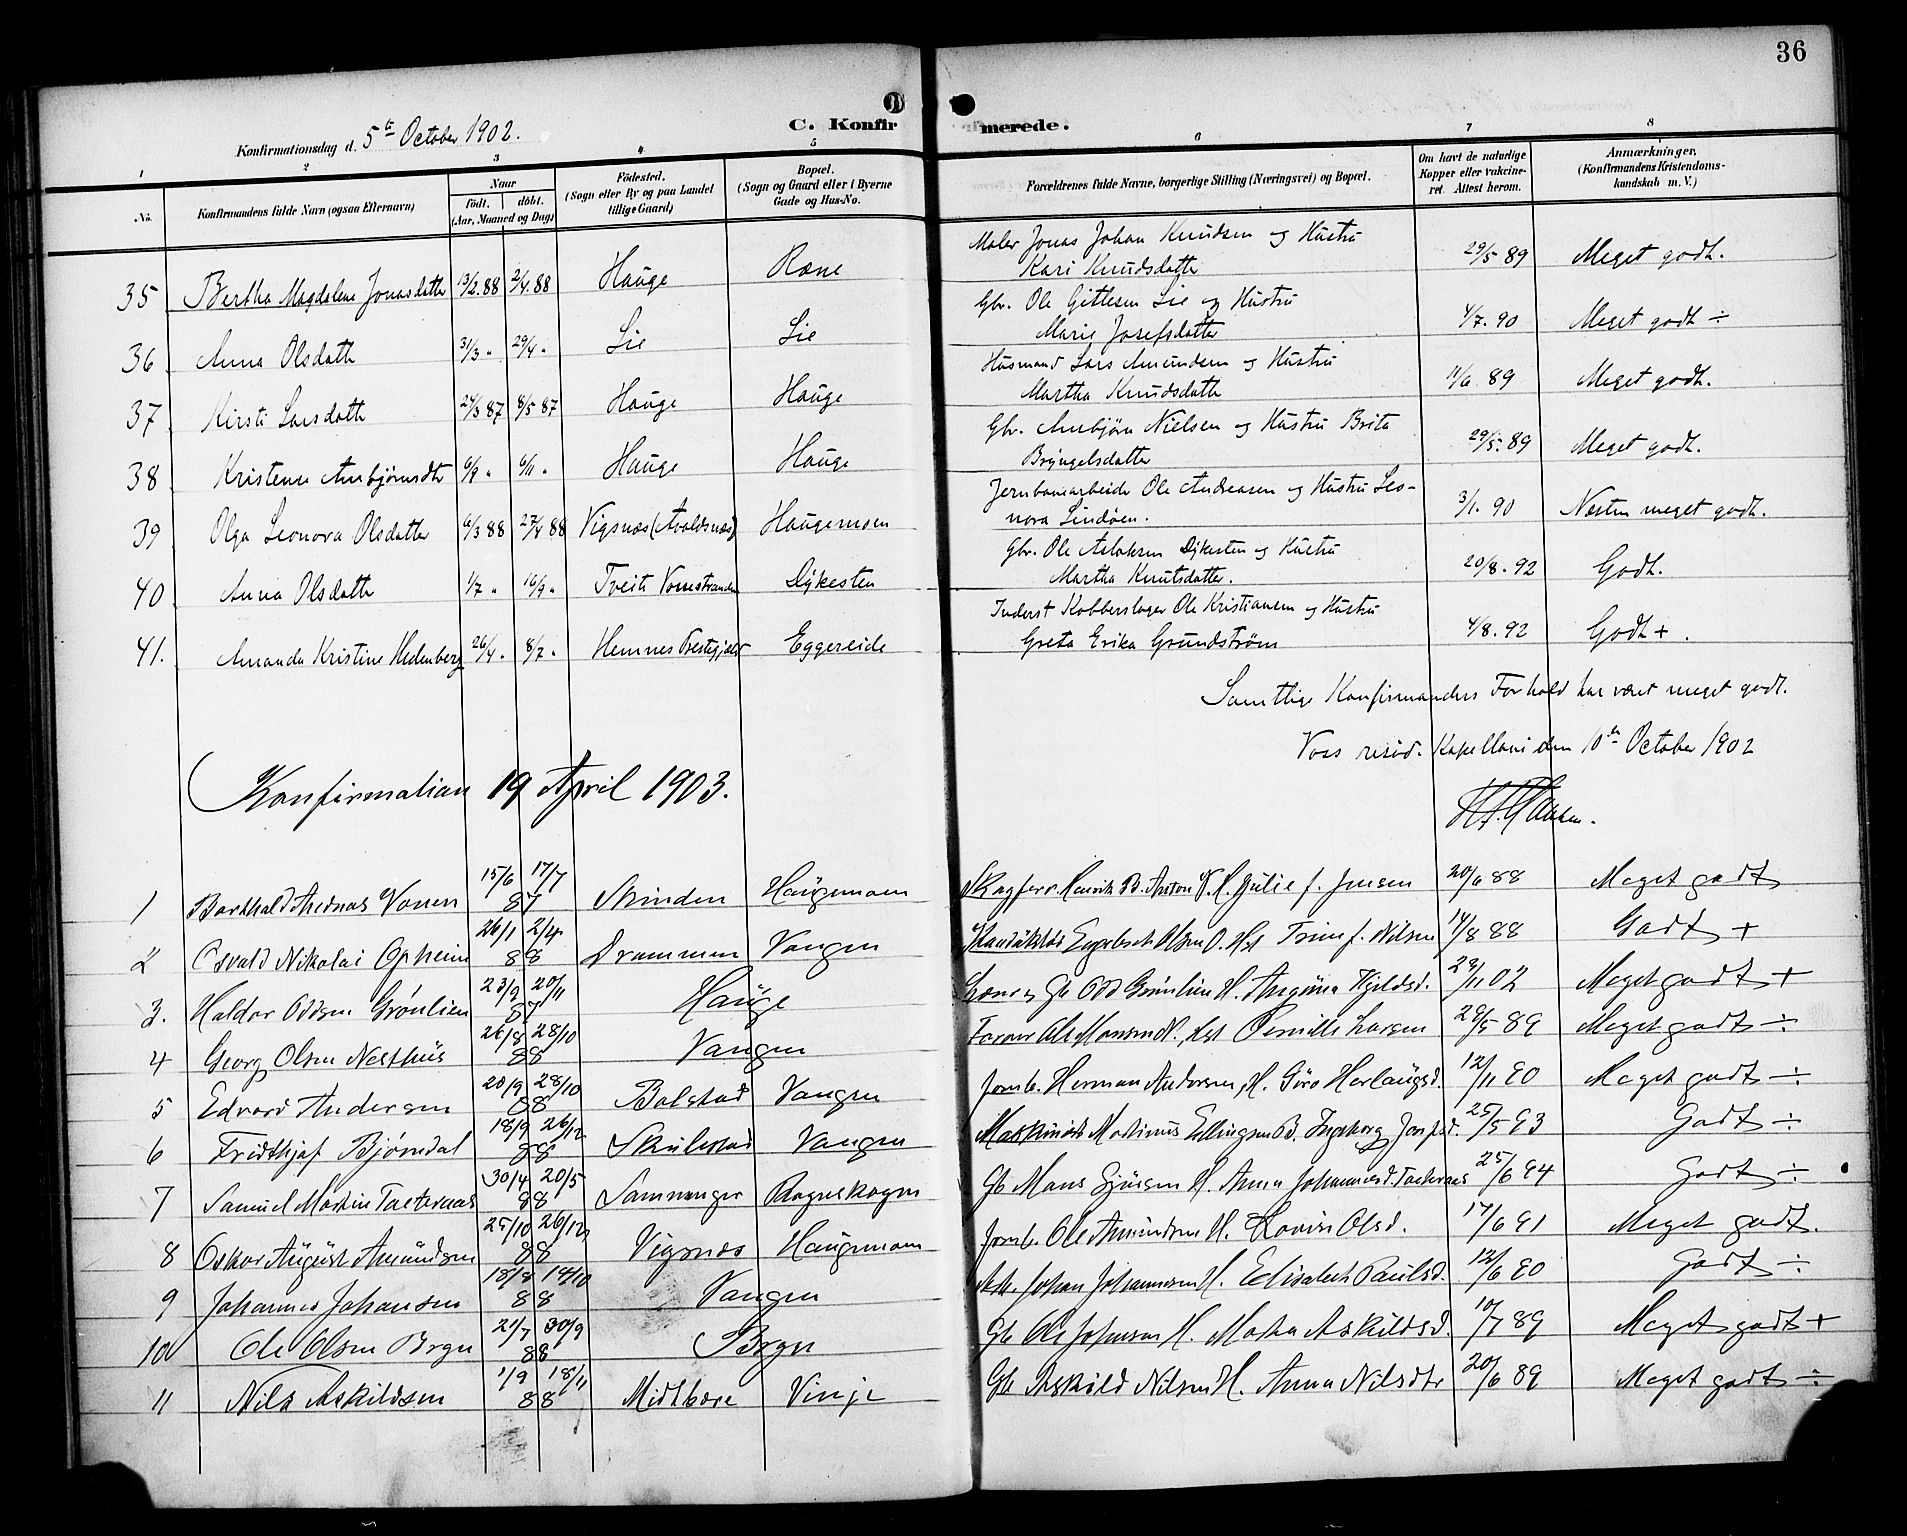 36
Konfirmationsdag d. 5te October 1902.
C. Konfirmerede.
1 2 3 4 5 6 7 8
No.
Konfirmandens fulde Navn (ogsaa Efternavn)
Naar
födt. döbt.
(Aar, Maaned og Dag)
Födested.
(Sogn eller By og paa Landet
tillige Gaard)
Bopæl.
(Sogn og Gaard eller i Byerne
Gade og Hus-No.
Forældrenes fulde Navne, borgerlige Stilling (Næringsvei) og Bopæl.
Om havt de naturlige
Kopper eller vakcine-
ret. Attest herom.
Anmærkninger.
(Konfirmandens Kristendoms-
kundskab m. V.)
Maler Jonas Johan Knudsen og Hustru
35 Bertha Magdalene Jonasdatter 13/2.88 2/4.88 Hauge Rene Kari Knudsdatter 29/5 89 Meget godt.
Gbr. Ole Gitlesen Lie og Hustru
36 Anna Olsdatter 31/3 " 29/4 " Lie Lie Marie Josefsdatter 4/7. 90 Meget godt ÷
Husmand Lars Amundsen og Hustru
37 Kirsti Larsdatter 24/3 87 8/5 87 Hauge Hauge Martha Knudsdatter 11/6. 89 Meget godt.
Gbr. Anbjörn Nielsen og Hustru Brita
38 Kristense Anbjörnsdtr 6/9 " 6/11 " Hauge Hauge Bryngelsdatter 29/5. 89 Meget godt.
Jernbanearbeider Ole Andreasen og Hustru Leo-
39 Olga Leonora Olsdatter 6/3 88 27/4 88 Vigsnæs (Avaldsnæs) Haugemoen nora Lindöen. 3/1. 90 Næsten meget godt.
Gbr. Ole Aslaksen Dykesten og Hustru
40 Anna Olsdatter 1/7 " 16/9 " Tveite Dykesten Martha Knutsdatter. 20/8. 92 Godt.
Inderst Kobberslager Ole Kristiansen og Hustru
41. Amanda Kristine Hedenberg 26/4 " 8/7 " Hemnes Præstegjæld Eggereide Greta Erika Grundström 4/8. 92 Godt + .
Samtlige Konfirmanders Forhold har været meget godt.
Voss resid. Kapellani den 10de October 1902
Konfirmation 19 April 1903.
1 Barthold Andreas Vonen 15/6 17/7 87 Haugemoen Jensen 20/6 88 Meget godt
2 Osvald Nikolai Opheim 26/1 2/4 88 Drammen Vangen Engebret Olsen O. Hst Trine f. Nilsen 14/8 88 Godt +
3. Haldor Oddsen Grönlien 23/9 20/11 87 Hauge Gb Odd Grönlien H. 28/11 02 Meget godt +
4 Georg Olsen Nesthus 26/8 28/10 88 Vangen Pernille Larsen 29/5 89 Meget godt ÷
5 Edvard Andersen 20/9 28/10 88 Bolstad Vangen Jernb. Herman Andersen, H. Guro Herlaugsd. 12/11 90 Meget godt ÷
6 Fridthjof Bjørndal 18/9 26/12 88 Skulestad Vangen Maskinist Ellingsen B. Ingeborg Josefsd. 25/5 93 Godt ÷
7 Samuel Martin Tveteraas 30/4 20/5 88 Samnanger Rogneskogen Gb Mons Sjursen H. Anna Johannesd. 25/6 94 Godt ÷
8 Oskar August Amundsen 25/10 26/12 88 Vigsnæs Haugemoen Jernb. Ole Amundsen H. Lovise Olsd. 17/6 91 Meget godt.
9 Johannes Johansen 18/8 14/10 88 Vangen Johan Johannesen H. Elisabeth Paulsd. 12/6 90 Godt ÷
10 Ole Olsen Brgn 21/7 30/9 88 Brgn Gb Ole Johnson H. Marta Askildsd. 10/7 89 Meget godt +
11 Nils Askildsen 1/9 18/11 88 Midtbære Vinje Gb Askild Nilsen H. Anna Nilsdtr 20/6 89 Meget godt ÷